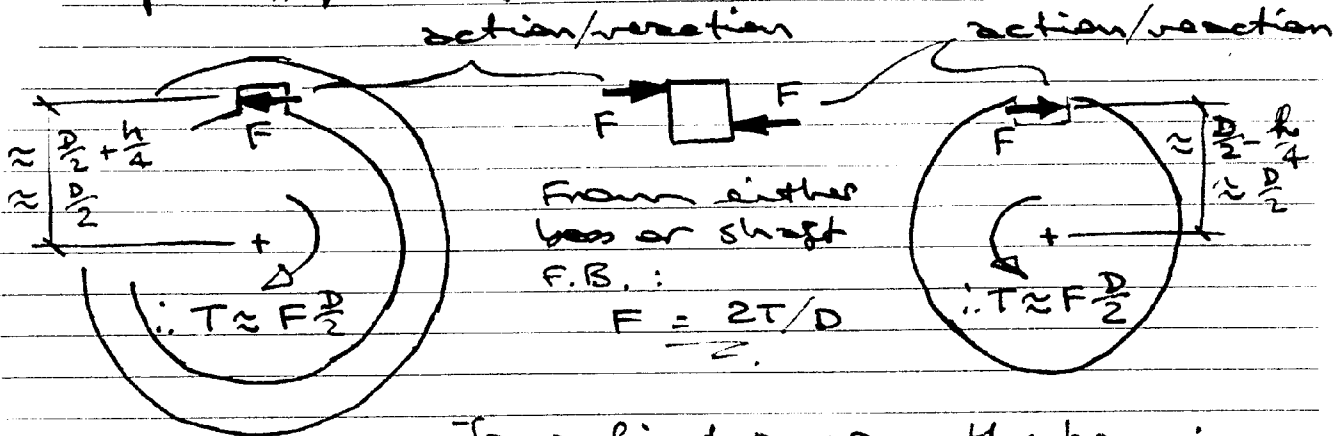 action/reaction
action/reaction
F
F
F
F
≈ D/2 + h/4
≈ D/2
≈ D/2 - h/4
≈ D/2
From either
boss or shaft
F.B. :
F = 2T/D
+
∴ T ≈ F D/2
+
∴ T ≈ F D/2